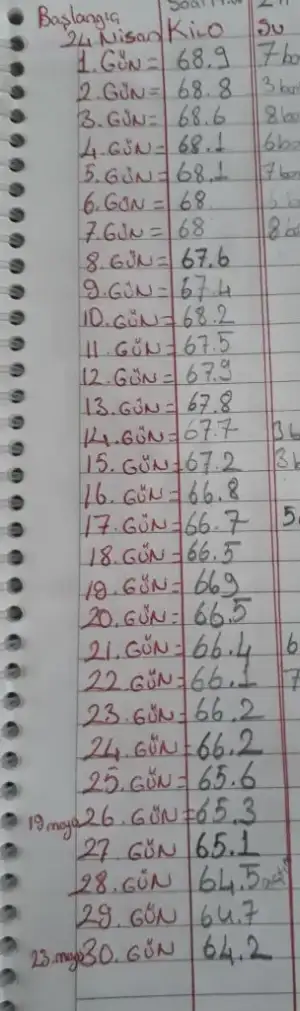 Başlangıç
24 Nisan Kilo Su
1. GÜN = 68.9 7 bar
2. GÜN = 68.8 3 bar
3. GÜN = 68.6 8 bar
4. GÜN = 68.1 6 bar
5. GÜN = 68.1 7 bar
6. GÜN = 68
7. GÜN = 68 8
8. GÜN = 67.6
9. GÜN = 67.4
10. GÜN = 68.2
11. GÜN = 67.5
12. GÜN = 67.9
13. GÜN = 67.8
14. GÜN = 67.7 3
15. GÜN = 67.2 3
16. GÜN = 66.8
17. GÜN = 66.7 5
18. GÜN = 66.5
19. GÜN = 669
20. GÜN = 66.5
21. GÜN = 66.4 6
22. GÜN = 66.1 7
23. GÜN = 66.2
24. GÜN = 66.2
25. GÜN = 65.6
19 mayıs 26. GÜN = 65.3
27. GÜN 65.1
28. GÜN 64.5
29. GÜN 64.7
23. mayıs 30. GÜN 64.2